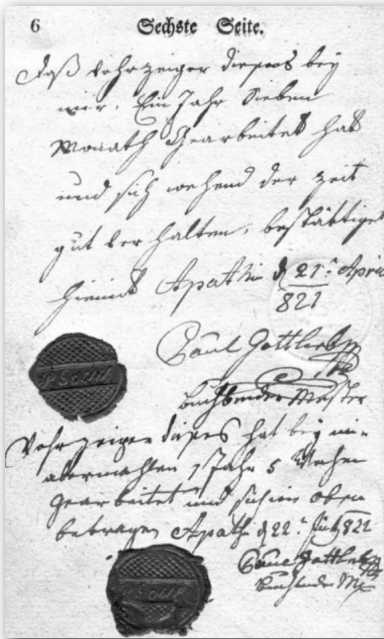 6 Sechste Seite.
Daß Vohrzeiger dieses bey
mir. Ein Jahr Sieben
Monath Gearbeitet hat
und sich wehend der zeit
gut verhalten, bestättiget
hiemit Apathin d 21t April
821
Paul Gottlieb
Buchbinder Master
Vohrzeiger dieses hat bey mir
abermahlen 1 Jahr 5 Wochen
Gearbeitet und sich wie oben
betragen Apathin d 22t 821
Paul Gottlieb
Buchbinder